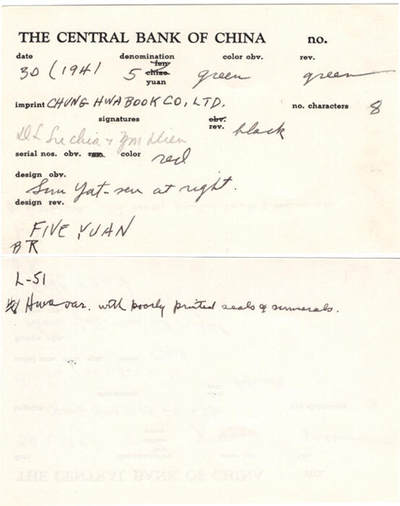 THE CENTRAL BANK OF CHINA no.
date denomination color obv. rev.
30 (1941 5 yuan green green
imprint CHUNG HWA BOOK CO., LTD. no. characters 8
signatures obv. rev. black
serial nos. obv. color red
design obv.
Sun Yat-sen at right.
design rev.
FIVE YUAN
L-51
Hwa var. with poorly printed seals & numerals.
THE CENTRAL BANK OF CHINA